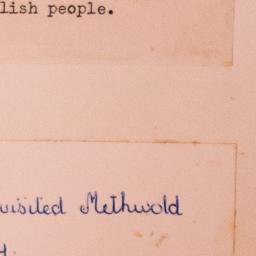 lish people.
visited Methwold